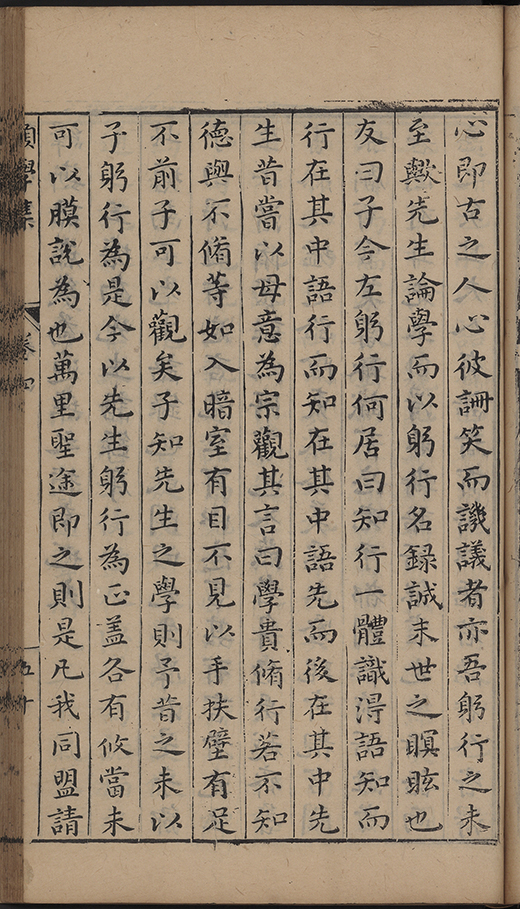 心即古之人心彼訕笑而譏議者亦吾躬行之未
至歟先生論學而以躬行名録誠末世之瞑眩也
友曰子今左躬行何居曰知行一體識得語知而
行在其中語行而知在其中語先而後在其中先
生昔嘗以毋意為宗觀其言曰學貴脩行若不知
德與不脩等如入暗室有目不見以手扶壁有足
不前子可以觀矣子知先生之學則予昔之未以
子躬行為是今以先生躬行為正盖各有攸當未
可以膜說為也萬里聖途即之則是凡我同盟請
學集
卷四
五十